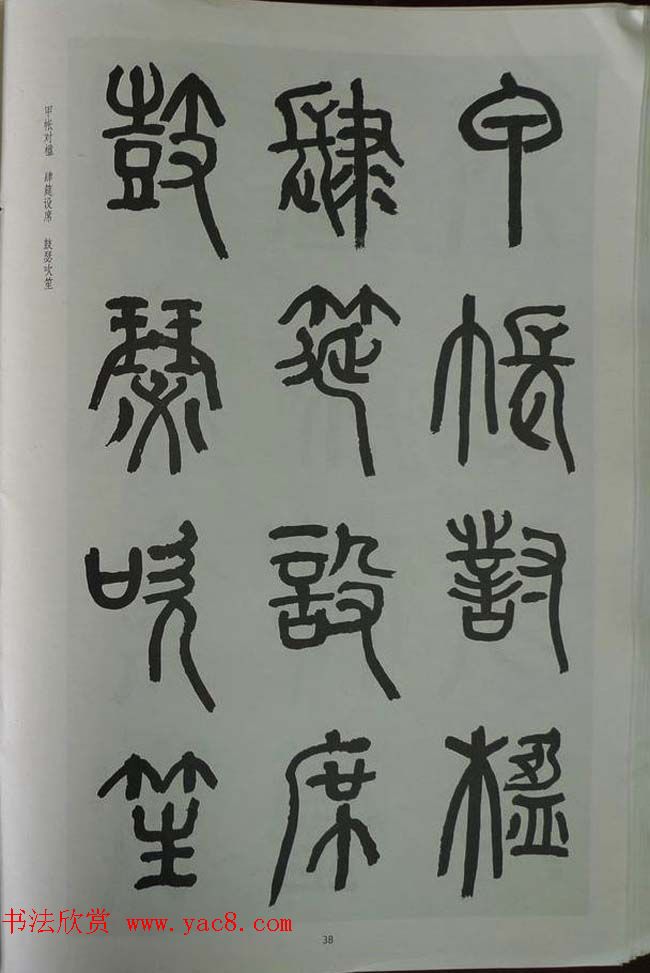 甲帐对楹
肆筵设席
鼓瑟吹笙
甲帐对楹 肆筵设席 鼓瑟吹笙
书法欣赏 www.yac8.com
38